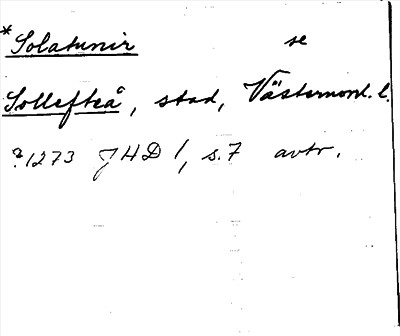 *Solatunir se
Sollefteå, stad, Västernorl. l.
?1273 JHD 1, s.7 avtr.